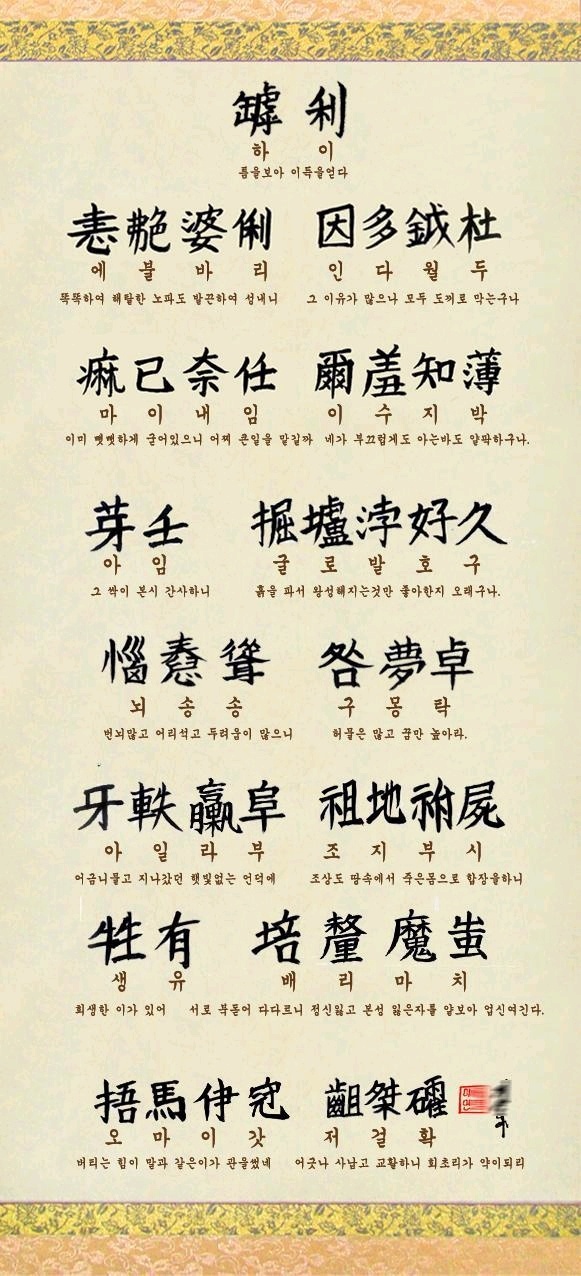 罅 利
하 이
틈을보아 이득을얻다
恚艴婆俐 因多鉞杜
에 불 바 리 인 다 월 두
똑똑하여 해탈한 노파도 발끈하여 성내니 그 이유가 많으나 모두 도끼로 막는구나
痲已奈任 爾羞知薄
마 이 내 임 이 수 지 박
이미 뻣뻣하게 굳어있으니 어찌 큰일을 맡길까 네가 부끄럽게도 아는바도 얄팍하구나.
芽壬 掘壚浡好久
아 임 굴 로 발 호 구
그 싹이 본시 간사하니 흙을 파서 왕성해지는것만 좋아한지 오래구나.
惱憃聳 咎夢卓
뇌 송 송 구 몽 탁
번뇌많고 어리석고 두려움이 많으니 허물은 많고 꿈만 높아라.
牙軼臝阜 祖地祔屍
아 일 라 부 조 지 부 시
어금니물고 지나갔던 햇빛없는 언덕에 조상도 땅속에서 죽은몸으로 합장을하니
牲有 培釐魔蚩
생 유 배 리 마 치
희생한 이가 있어 서로 북돋어 다다르니 정신잃고 본성 잃은자를 얕보아 업신여긴다.
捂馬伊 齟桀礭
오 마 이 갓 저 걸 확
버티는 힘이 말과 같은이가 관을썼네 어긋나 사납고 교활하니 회초리가 약이되리